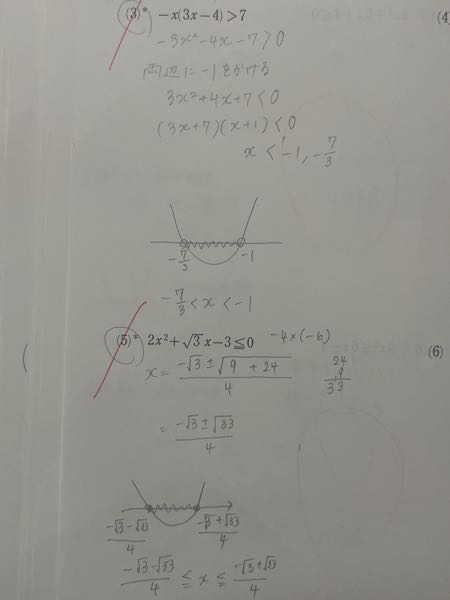 (3)* −x(3x−4)>7
(4)
−3x²−4x−7>0
両辺に−1をかける
3x²+4x+7<0
(3x+7)(x+1)<0
x < −1, −7/3
−7/3
−1
−7/3 < x < −1
(5)* 2x²+√3x−3≦0
−4×(−6)
(6)
x = (−√3 ± √(9+24))/4
24
9
33
= (−√3 ± √33)/4
(−√3−√33)/4
(−√3+√33)/4
(−√3−√33)/4 ≦ x ≦ (−√3+√33)/4